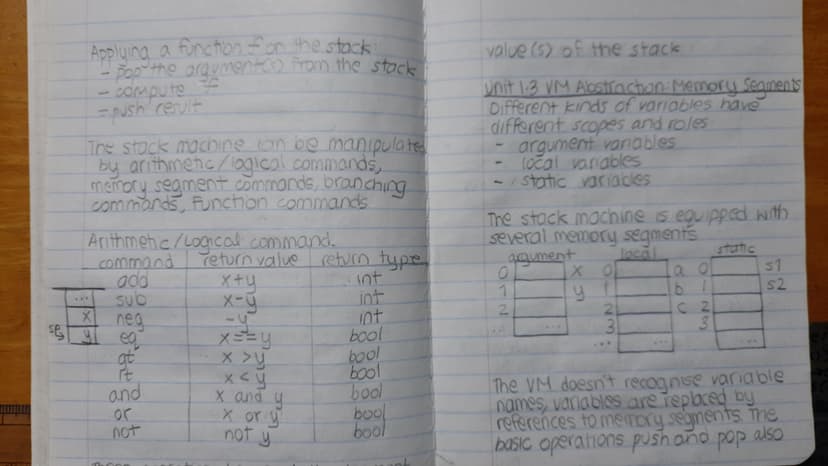 Applying a function f on the stack:
- pop the argument(s) from the stack
- compute f
- push result
The stack machine can be manipulated
by arithmetic/logical commands,
memory segment commands, branching
commands, function commands
Arithmetic/Logical command.
command return value return type
add x+y int
... sub x-y int
x neg -y int
y eq x==y bool
gt x>y bool
lt x<y bool
and x and y bool
or x or y bool
not not y bool
value(s) of the stack
Unit 1.3 VM Abstraction: Memory Segments
Different kinds of variables have
different scopes and roles
- argument variables
- local variables
- static variables
The stack machine is equipped with
several memory segments
argument local static
0 x 0 a 0 s1
1 y 1 b 1 s2
2 2 c 2
... 3 3
... ... ... ...
The VM doesn't recognise variable
names, variables are replaced by
references to memory segments. The
basic operations push and pop also